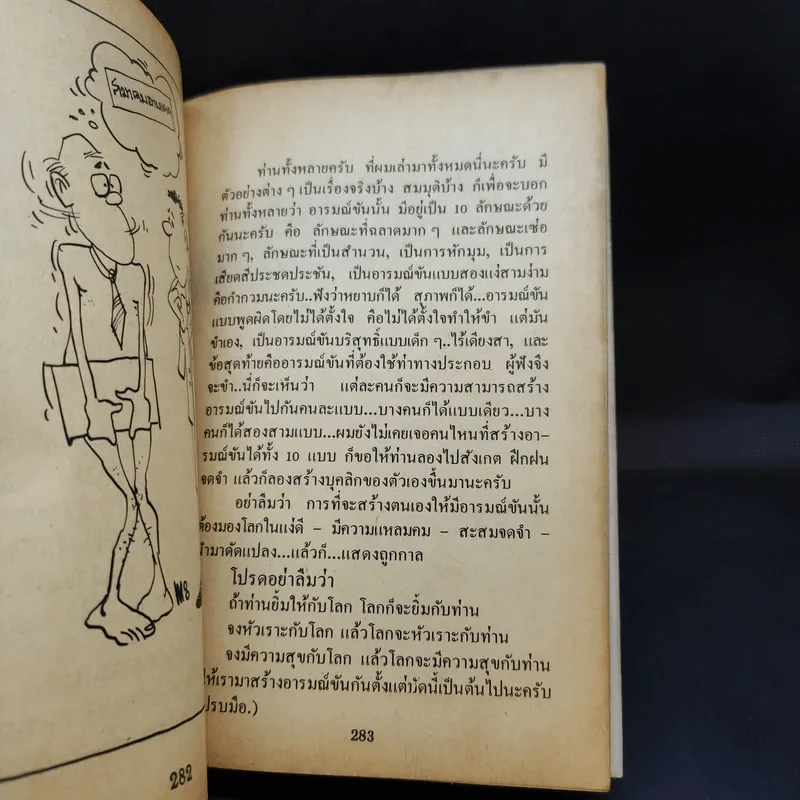 282
ท่านทั้งหลายครับ ที่ผมเล่ามาทั้งหมดนี่นะครับ มี
ตัวอย่างต่าง ๆ เป็นเรื่องจริงบ้าง สมมุติบ้าง ก็เพื่อจะบอก
ท่านทั้งหลายว่า อารมณ์ขันนั้น มีอยู่เป็น 10 ลักษณะด้วย
กันนะครับ คือ ลักษณะที่ฉลาดมาก ๆ และลักษณะเซ่อ
มาก ๆ, ลักษณะที่เป็นสำนวน, เป็นการหักมุม, เป็นการ
เสียดสีประชดประชัน, เป็นอารมณ์ขันแบบสองแง่สามง่าม
คือกำกวมนะครับ..ฟังว่าหยาบก็ได้ สุภาพก็ได้...อารมณ์ขัน
แบบพูดผิดโดยไม่ได้ตั้งใจ คือไม่ได้ตั้งใจทำให้ขำ แต่มัน
ขำเอง, เป็นอารมณ์ขันบริสุทธิ์แบบเด็ก ๆ..ไร้เดียงสา, และ
ข้อสุดท้ายคืออารมณ์ขันที่ต้องใช้ท่าทางประกอบ ผู้ฟังจึง
จะขำ..นี่ก็จะเห็นว่า แต่ละคนก็จะมีความสามารถสร้าง
อารมณ์ขันไปกันคนละแบบ...บางคนก็ได้แบบเดียว...บาง
คนก็ได้สองสามแบบ...ผมยังไม่เคยเจอคนไหนที่สร้างอา-
รมณ์ขันได้ทั้ง 10 แบบ ก็ขอให้ท่านลองไปสังเกต ฝึกฝน
จดจำ แล้วก็ลองสร้างบุคลิกของตัวเองขึ้นมานะครับ
อย่าลืมว่า การที่จะสร้างตนเองให้มีอารมณ์ขันนั้น
ต้องมองโลกในแง่ดี – มีความแหลมคม – สะสมจดจำ –
นำมาดัดแปลง...แล้วก็...แสดงถูกกาล
โปรดอย่าลืมว่า
ถ้าท่านยิ้มให้กับโลก โลกก็จะยิ้มกับท่าน
จงหัวเราะกับโลก แล้วโลกจะหัวเราะกับท่าน
จงมีความสุขกับโลก แล้วโลกจะมีความสุขกับท่าน
ให้เรามาสร้างอารมณ์ขันกันตั้งแต่บัดนี้เป็นต้นไปนะครับ
ปรบมือ.)
283